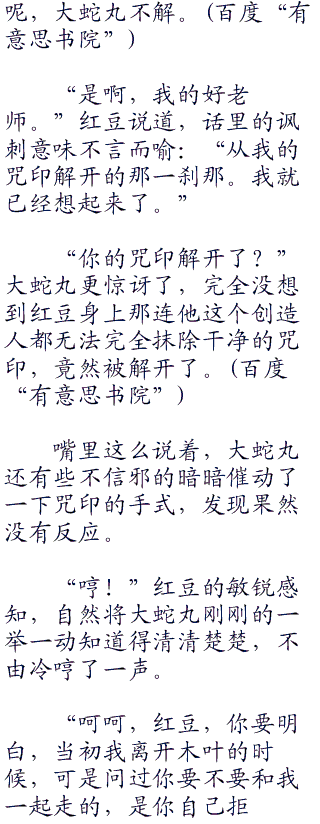 呢，大蛇丸不解。(百度“有
意思书院”)
“是啊，我的好老
师。”红豆说道，话里的讽
刺意味不言而喻：“从我的
咒印解开的那一刹那。我就
已经想起来了。”
“你的咒印解开了？”
大蛇丸更惊讶了，完全没想
到红豆身上那连他这个创造
人都无法完全抹除干净的咒
印，竟然被解开了。(百度
“有意思书院”)
嘴里这么说着，大蛇丸
还有些不信邪的暗暗催动了
一下咒印的手式，发现果然
没有反应。
“哼！”红豆的敏锐感
知，自然将大蛇丸刚刚的一
举一动知道得清清楚楚，不
由冷哼了一声。
“呵呵，红豆，你要明
白，当初我离开木叶的时
候，可是问过你要不要和我
一起走的，是你自己拒